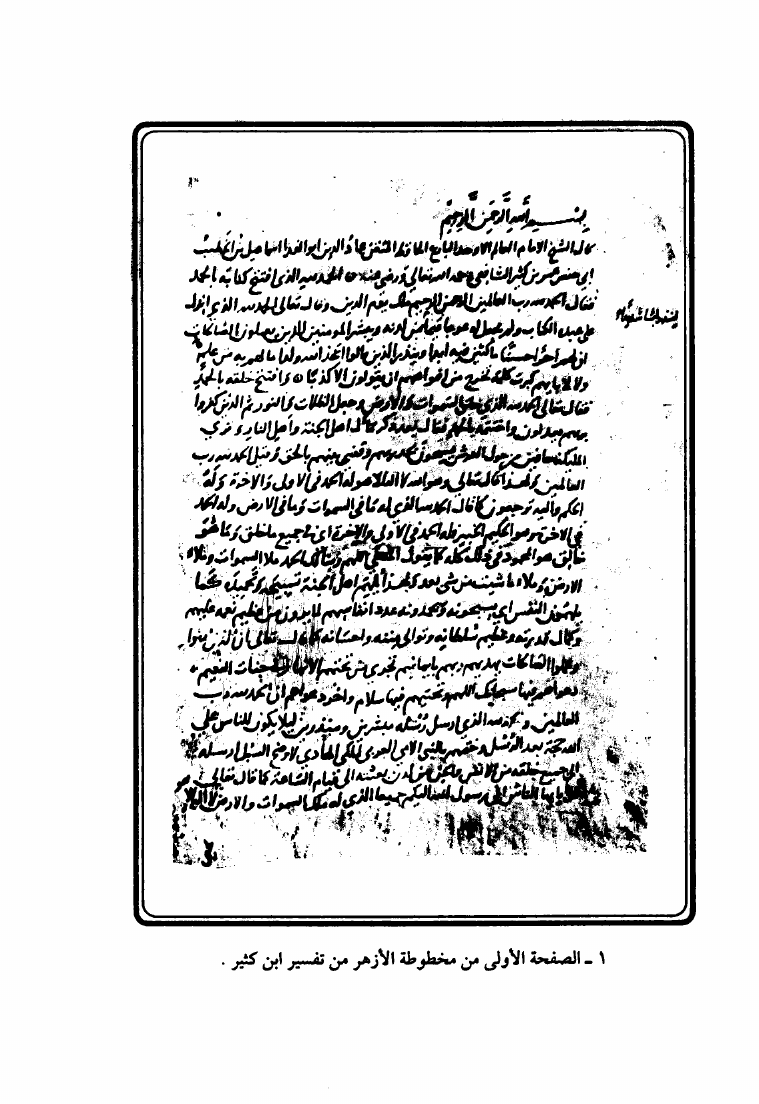 بسم الله الرحمن الرحيم
قال الشيخ الامام العالم الاوحد البارع الحافظ المتقن عماد الدين ابو الفدا اسماعيل بن الخطيب
ابى حفص عمر بن كثير الشافعى رحمه الله تعالى ورضى عنه الحمد لله الذى افتتح كتابه بالحمد
فقال الحمد لله رب العالمين الرحمن الرحيم ملك يوم الدين وقال تعالى الحمد لله الذى انزل
على عبده الكتاب ولم يجعل له عوجا قيما من لدنه ويبشر المومنين الذين يعملون الصالحات
ان لهم اجرا حسنا ماكثين فيه ابدا وينذر الذين قالوا اتخذ الله ولدا ما لهم به من علم
ولا لابايهم كبرت كلمة تخرج من افواههم ان يقولون الا كذبا وافتتح خلقه بالحمد
فقال تعالى الحمد لله الذى خلق السموات والارض وجعل الظلمات والنور ثم الذين كفروا
بربهم يعدلون واختتمه بالحمد فقال بعد ذكر مآل اهل الجنة واهل النار وترى
الملايكة حافين من حول العرش يسبحون بحمد ربهم وقضى بينهم بالحق وقيل الحمد لله رب
العالمين ولهذا قال تعالى وهو الله لا اله الا هو له الحمد فى الاولى والاخرة وله
الحكم واليه ترجعون كما قال الحمد لله الذى له ما فى السموات وما فى الارض وله الحمد
فى الاخرة وهو الحكيم الخبير فله الحمد فى الاولى والاخرة اى فى جميع ما خلق وما هو
خالق هو المحمود فى ذلك كله كما يقول المصلى اللهم ربنا لك الحمد ملا السموات وملا
الارض وملا ما شيت من شى بعد ولهذا يلهم اهل الجنة تسبيحه وتحميده كما
يلهمون النفس اى يسبحونه ويحمدونه عدد انفاسهم لما يرون من عظيم نعمه عليهم
وكمال قدرته وعظيم سلطانه وتوالى مننه واحسانه كما قال تعالى ان الذين امنوا
وعملوا الصالحات يهديهم ربهم بايمانهم تجرى من تحتهم الانهار فى جنات النعيم
دعواهم فيها سبحانك اللهم وتحيتهم فيها سلام واخر دعواهم ان الحمد لله رب
العالمين والحمد لله الذى ارسل رسله مبشرين ومنذرين ليلا يكون للناس على
الله حجة بعد الرسل وختمهم بالنبى الامى العربى المكى الهادى لاوضح السبل ارسله
الى جميع خلقه من الانس والجن من لدن بعثته الى قيام الساعة كما قال تعالى
قل يا ايها الناس انى رسول الله اليكم جميعا الذى له ملك السموات والارض لا اله الا
١ ـ الصفحة الأولى من مخطوطة الأزهر من تفسير ابن كثير .